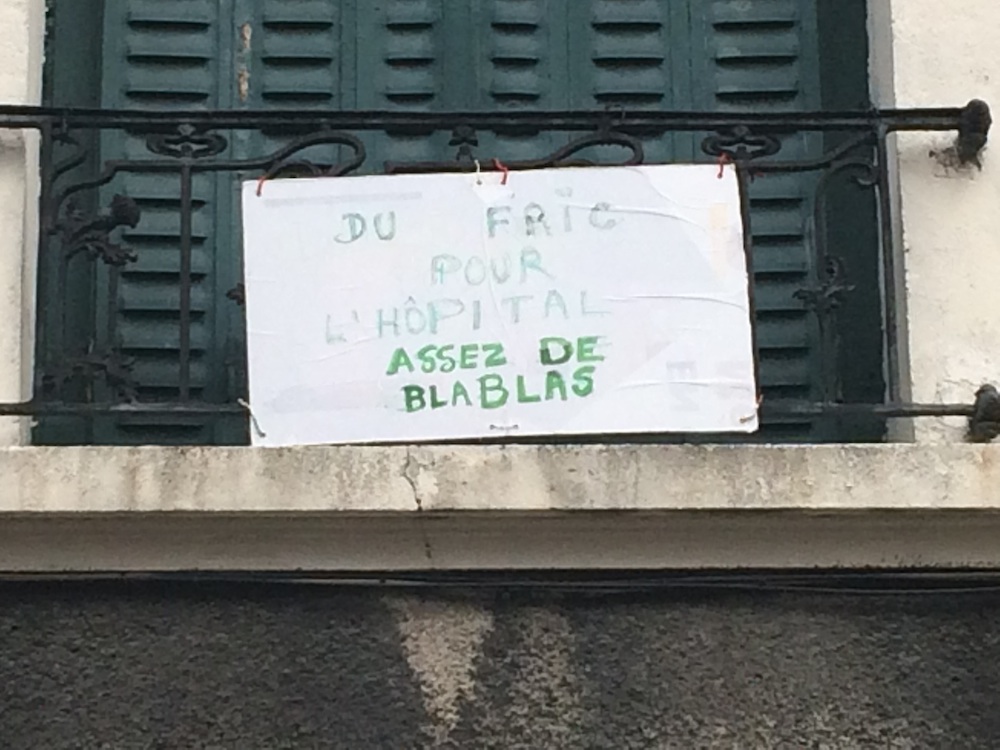 DU FRÏC
POUR
L'HÔPITAL
ASSEZ DE
BLABLAS